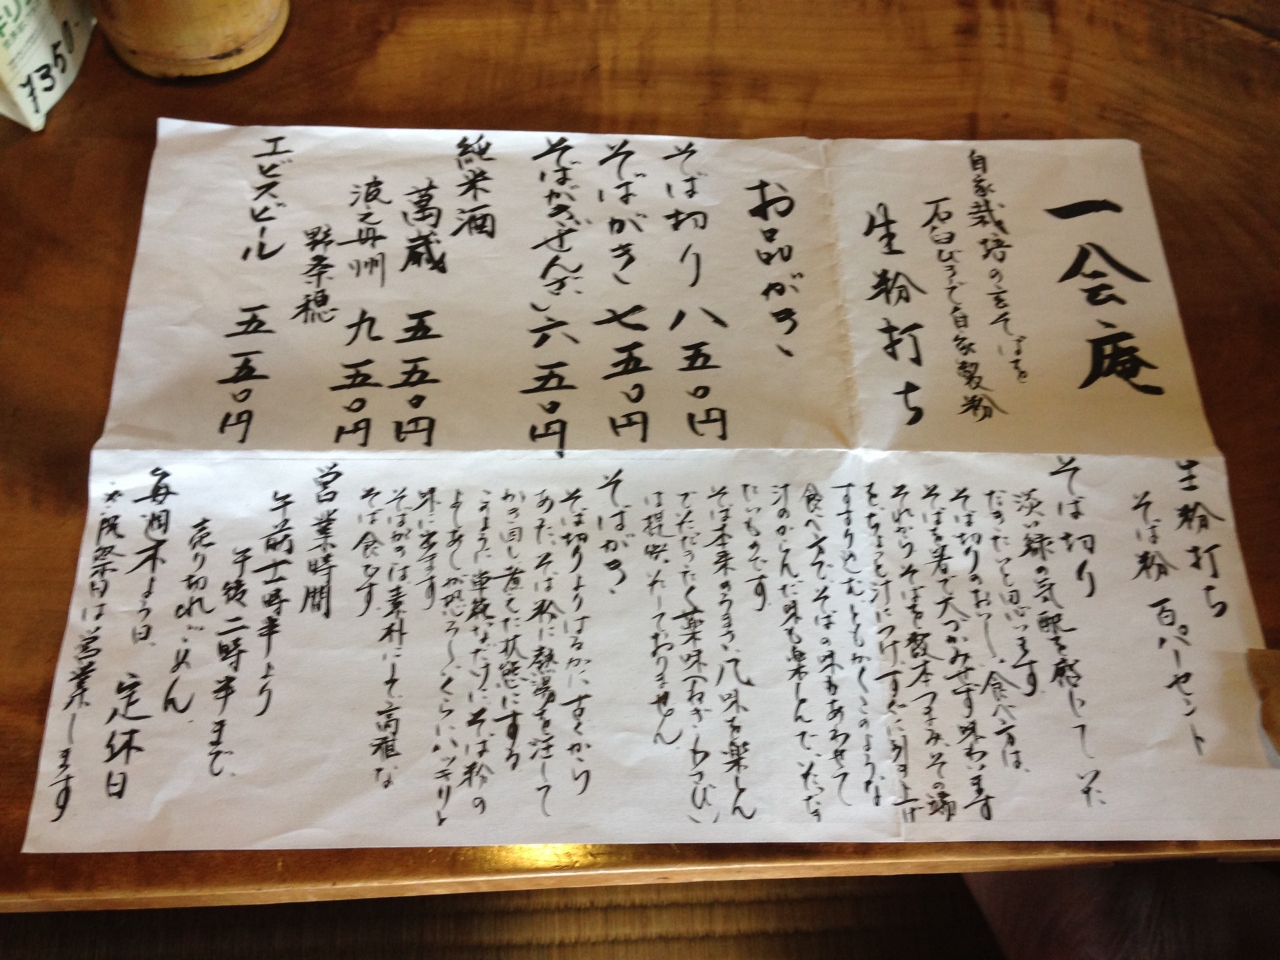 一会庵
自家栽培の玄そばを
石臼びきで自家製粉
生粉打ち
お品がき
そば切り 八五〇円
そばがき 七五〇円
そばがきぜんざい 六五〇円
純米酒
萬歳 五五〇円
波之丹州 九五〇円
野条穂
エビスビール 五五〇円
生粉打ち
そば粉 百パーセント
そば切り
淡い緑の気配を感じていた
だきたいと思います
そば切りのおいしい食べ方は、
そばを箸で大づかみせず味わいます
それからそばを数本つまみ、その端
をちょっと汁につけ、すぐに引き上げ
すすり込む、ともかくこのような
食べ方で、そばの味もあわせて
汁のからんだ味も楽しんでいただき
たいものです
そば本来のうまい風味を楽しん
でいただきたく薬味(ねぎ・わさび)
は提供いたしておりません
そばがき
そば切りよりはるかに古くから
あった、そば粉に熱湯を注して
かき回し煮えた状態にする
このように単純なだけにそば粉の
よしあしが恐ろしいくらいハッキリと
味に出ます
そばがきは素朴にして高雅な
そば食です
営業時間
午前十一時半より
午後二時半まで
売り切れごめん
毎週木よう日 定休日
祭日は営業します
¥350